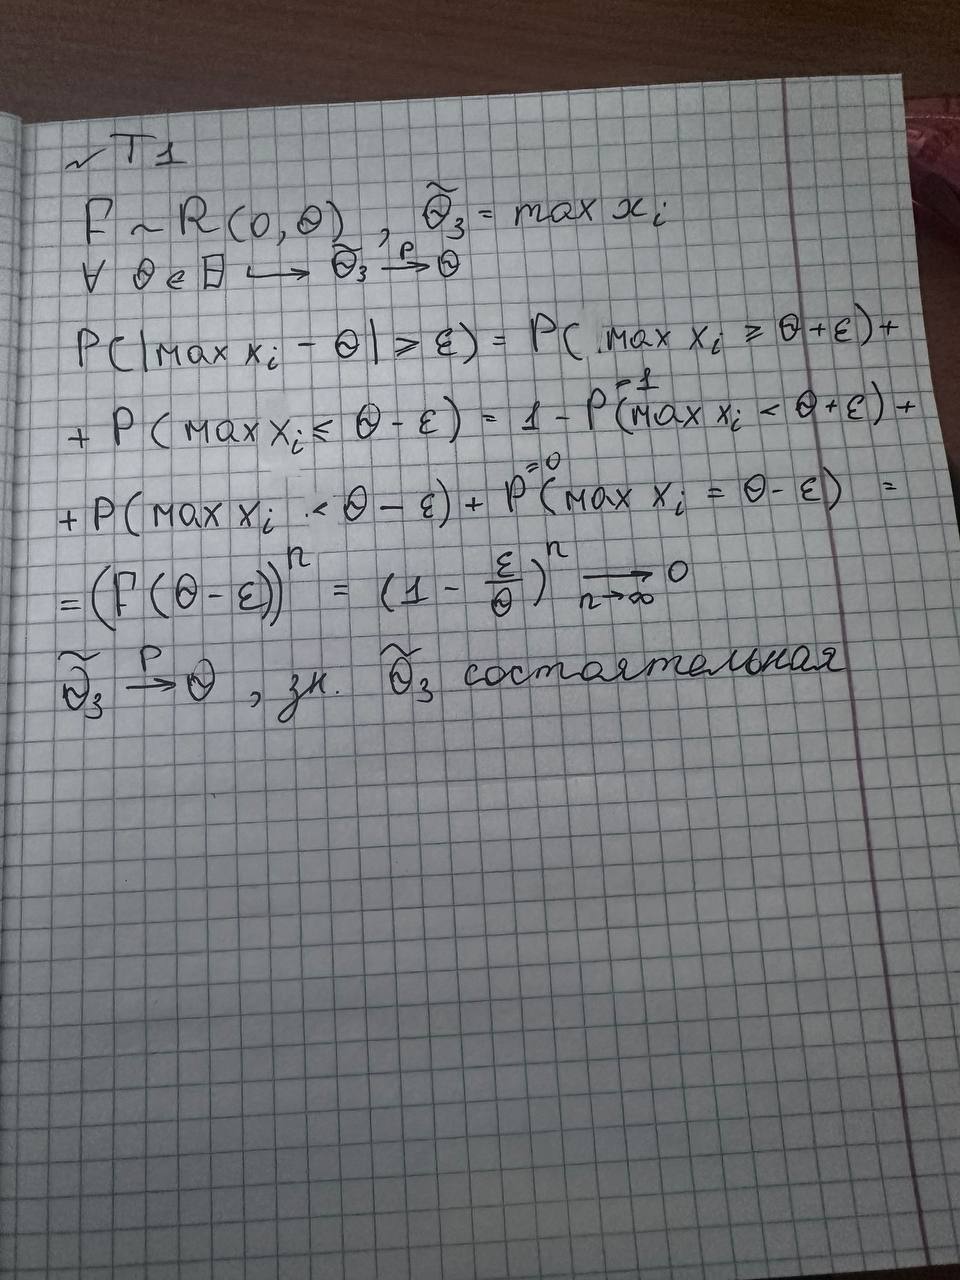 ~ T1
F ~ R(0, θ), θ̃₃ = max xᵢ
∀ θ ∈ Θ ⟼ θ̃₃ →ᴾ θ
P(|max xᵢ - θ| ≥ ε) = P(max xᵢ ≥ θ+ε) +
+ P(max xᵢ ≤ θ - ε) = 1 - P⁼¹(max xᵢ < θ+ε) +
+ P(max xᵢ < θ - ε) + P⁼⁰(max xᵢ = θ - ε) =
= (F(θ - ε))ⁿ = (1 - ε/θ)ⁿ ⟶ 0 n→∞
θ̃₃ →ᴾ θ, зн. θ̃₃ состоятельная